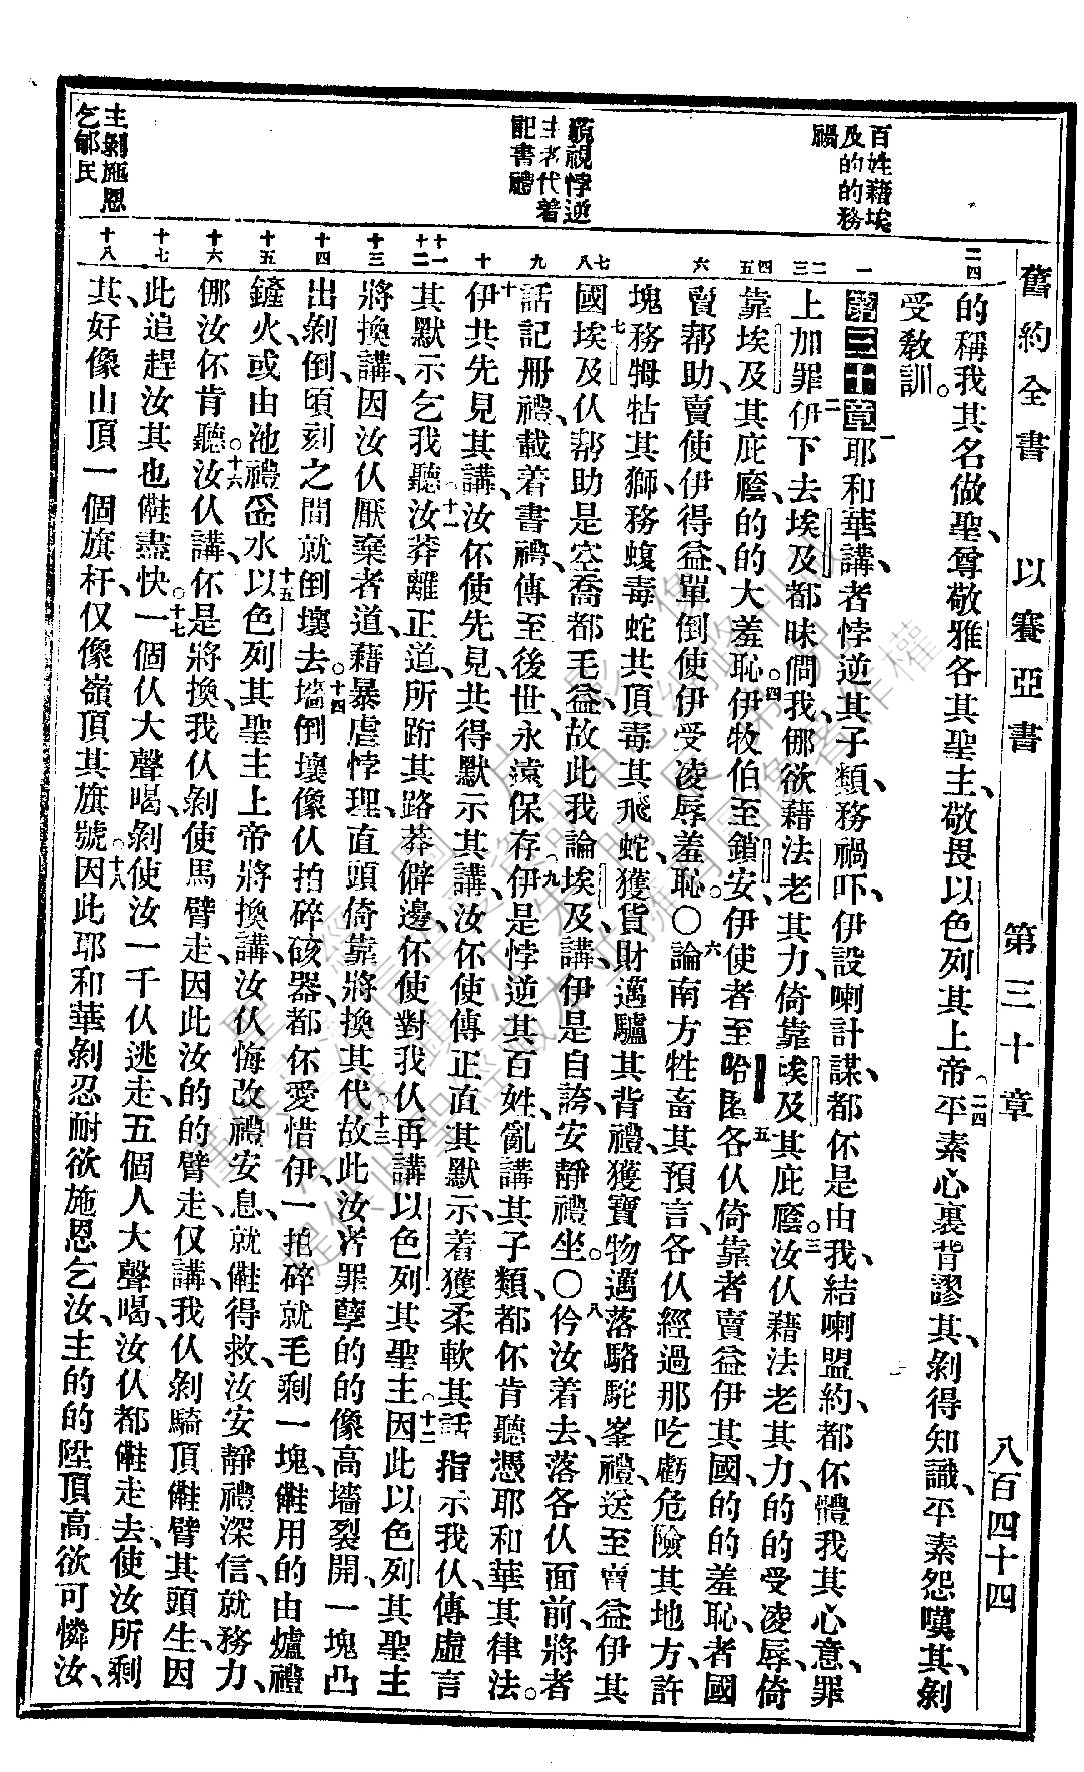 舊約全書 以賽亞書 第三十章 八百四十四
百姓藉埃
及的的務
禍
主者代着
記書禮
主剝施恩
乞郇民
二四
一
二三
四五
六
七八
九
十
十一十二
十三
十四
十五
十六
十七
十八
的稱我其名做聖、尊敬雅各其聖主、敬畏以色列其上帝。二四平素心裏背謬其、剝得知識、平素怨嘆其、剝
受教訓。
第三十章一耶和華講、者悖逆其子類、務禍吓、伊設喇計謀、都伓是由我、結喇盟約、都伓體我其心意、罪
上加罪、二伊下去埃及、都昧僩我、㑚欲藉法老其力、倚靠埃及其庇廕。三汝仫藉法老其力、的的受凌辱、倚
靠埃及其庇廕、的的大羞恥。四伊牧伯至鎖安、伊使者至哈匿、五各仫倚靠者賣益伊其國、的的羞恥、者國
賣幫助、賣使伊得益、單倒使伊受凌辱羞恥。〇六論南方牲畜其預言、各仫經過那吃虧危險其地方、許
塊務牳牯其獅、務蝮毒蛇共頂毒其飛蛇、獲貨財邁驢其背禮、獲寶物邁落駱駝峯禮、送至賣益伊其
國、七埃及仫幫助是空、喬都毛益、故此我論埃及、講伊是自誇、安靜禮坐。〇八伱汝着去、落各仫面前、將者
話記册禮、載着書禮、傳至後世、永遠保存、九伊是悖逆其百姓、亂講其子類、都伓肯聽憑耶和華其律法。
十伊共先見其講、汝伓使先見、共得默示其講、汝伓使傳正直其默示、着獲柔軟其話指示我仫、傳虛言
其默示乞我聽、十一汝莽離正道、所跡其路莽僻邊、伓使對我仫再講以色列其聖主。十二因此以色列其聖主
將換講、因汝仫厭棄者道、藉暴虐悖理、直頭倚靠、十三將換其代、故此汝者罪孽的的像高墻裂開、一塊凸
出、剝倒、頃刻之間就倒壞去。十四墻倒壞像仫拍碎硋器、都伓愛惜伊、一拍碎就毛剩一塊、㑲用的由爐禮
鏟火、或由池禮𠳝水。十五以色列其聖主上帝將換講、汝仫悔改禮安息、就㑲得救、汝安靜禮深信、就務力、
㑚汝伓肯聽。十六汝仫講、伓是將換、我仫剝使馬臂走、因此汝的的臂走、仅講、我仫剝騎頂㑲臂其頭生、因
此追趕汝其也㑲盡快。十七一個仫大聲喝、剝使汝一千仫逃走、五個人大聲喝、汝仫都㑲走去、使汝所剩
其、好像山頂一個旗杆、仅像嶺頂其旗號。十八因此耶和華剝忍耐欲施恩乞汝、主的的陞頂高欲可憐汝、